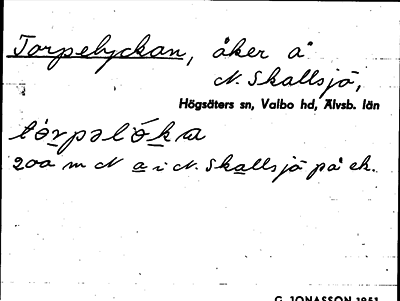 Torpelyckan, åker å
N. Skallsjö,
Högsäters sn, Valbo hd, Älvsb. län
tórpəlóka
200 m N a i N. Skallsjö på ek.
G. JONASSON 1951